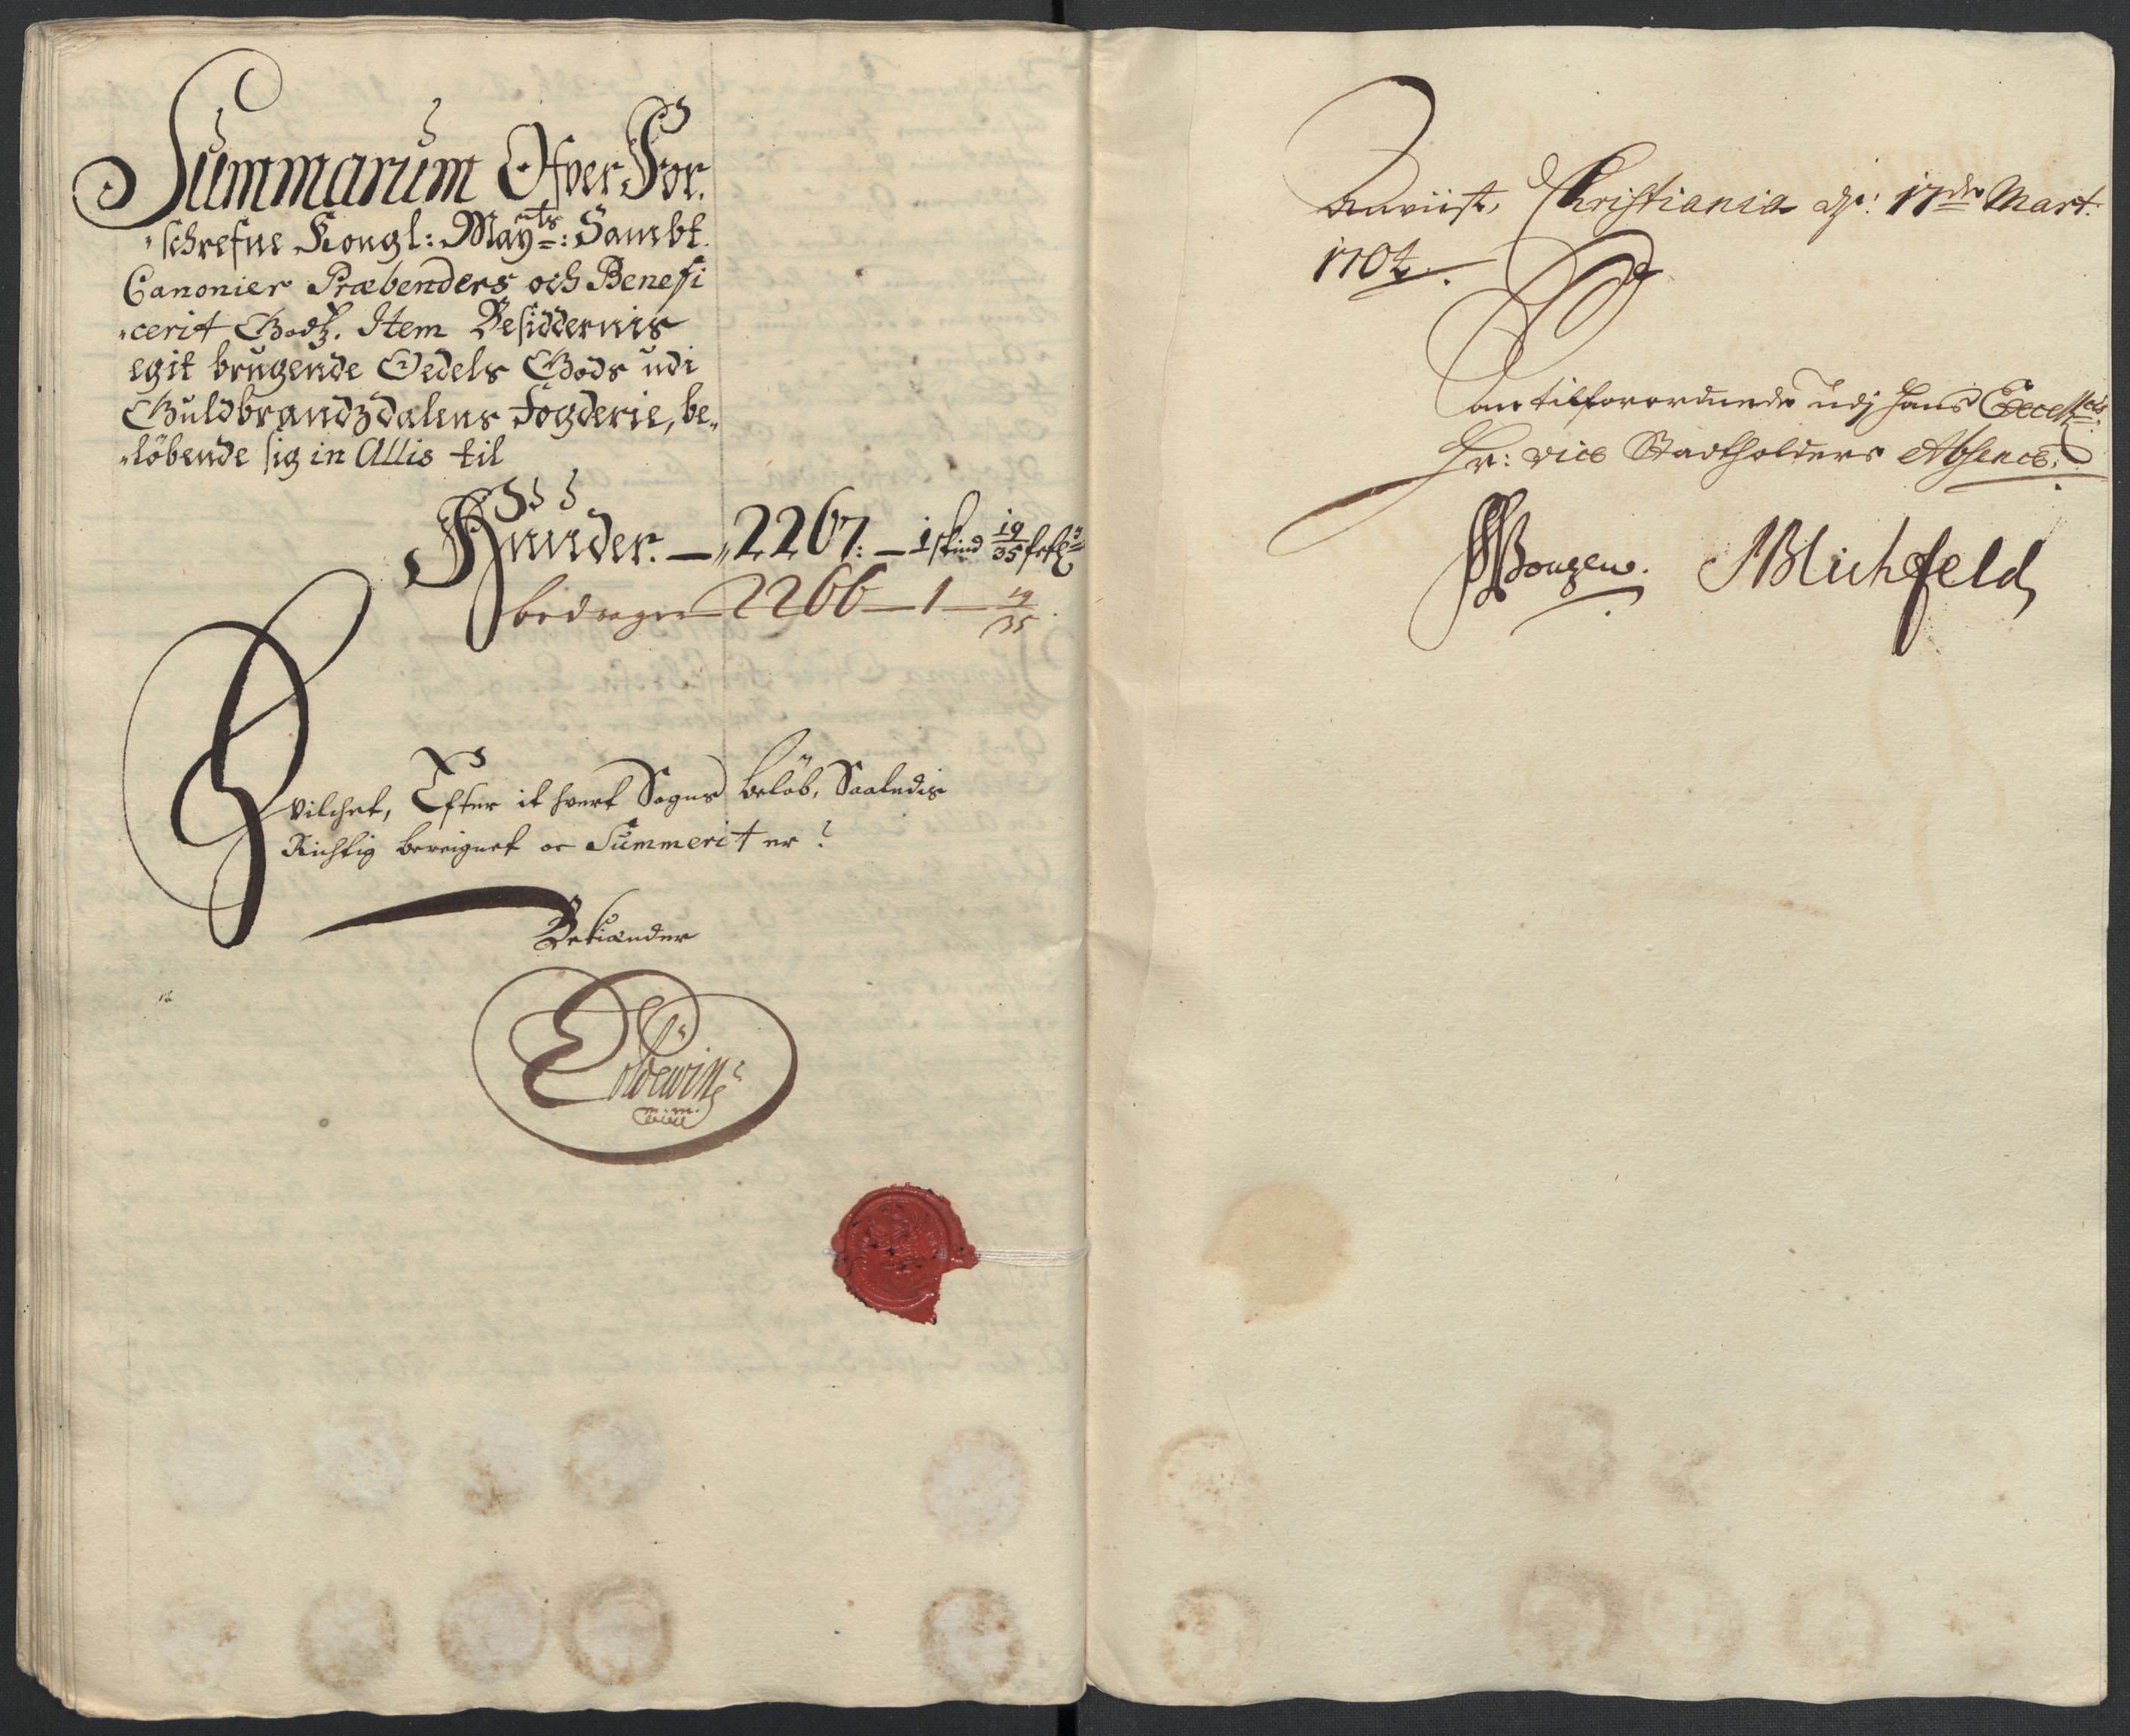 Summarum Ofver For
schrefne Kongl: May:ts: Sambt
Canonier Præbenders och Benefi
cerit Godtz. Item Besiddernis
egit brugende Oedels Gods udi
Guldbrandzdalens Fogderie, be„
„löbende sig in Allis til
Hunder. — 2267: — 1 skind 19/35
bedrager 2266 — 1 — 19/35.
Hvilchet, Efter it hvert Sogns beløb, Saaledis
Richtig bereignet oc Summerit er
Bekiender
m:m:
Reviist, Christiania d: 17de Mart:
1704.
tilforordnede udj hans Excell:
Hr: vice Stadtholders Absence.
JBlichfeld